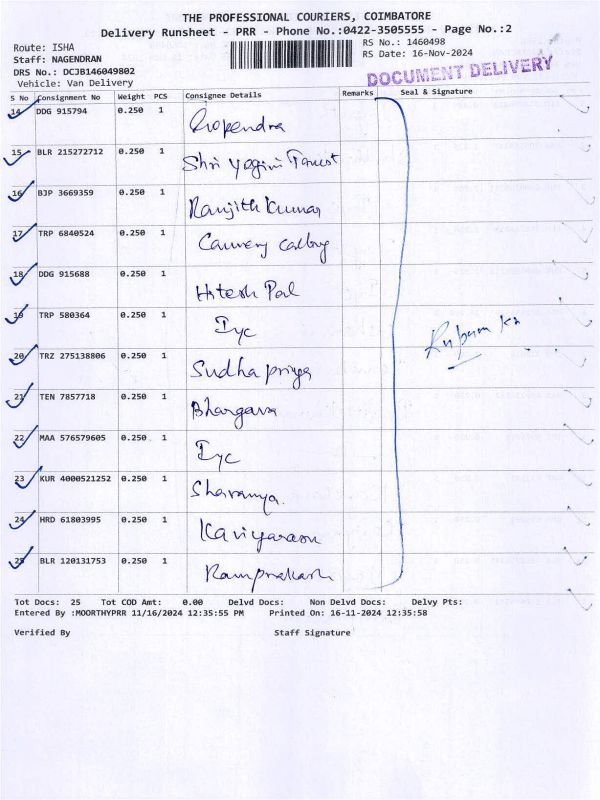 THE PROFESSIONAL COURIERS, COIMBATORE
Delivery Runsheet - PRR - Phone No.:0422-3505555 - Page No.:2
Route: ISHA
RS No.: 1460498
Staff: NAGENDRAN
RS Date: 16-Nov-2024
DRS No.: DCJB146049802
DOCUMENT DELIVERY
Vehicle: Van Delivery
S No Consignment No Weight PCS Consignee Details Remarks Seal & Signature
14 DDG 915794 0.250 1 Ropendra
15 BLR 215272712 0.250 1 Shri Yogini
16 BJP 3669359 0.250 1 Ranjith Kumar
17 TRP 6840524 0.250 1
18 DDG 915688 0.250 1 Hitesh Pal
19 TRP 580364 0.250 1 Iyc
20 TRZ 275138806 0.250 1 Sudha priya
21 TEN 7857718 0.250 1 Bhargava
22 MAA 576579605 0.250 1 Iyc
23 KUR 4000521252 0.250 1 Sharanya.
24 HRD 61803995 0.250 1 Kaviyarasu
25 BLR 120131753 0.250 1 Ramprakash
Tot Docs: 25 Tot COD Amt: 0.00 Delvd Docs: Non Delvd Docs: Delvy Pts:
Entered By :MOORTHYPRR 11/16/2024 12:35:55 PM Printed On: 16-11-2024 12:35:58
Verified By Staff Signature